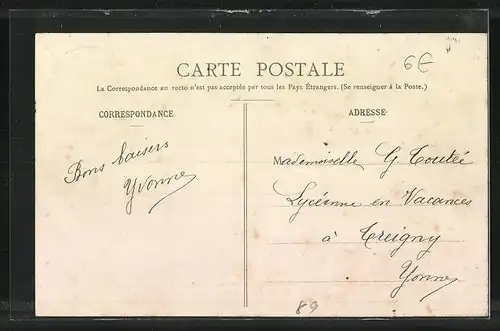 6€
CARTE POSTALE
La Correspondance au recto n'est pas acceptée par tous les Pays Étrangers. (Se renseigner à la Poste.)
CORRESPONDANCE
Bons baisers
Yvonne
ADRESSE
Mademoiselle G Toutée
Lycéenne en Vacances
à Treigny
Yonne
89